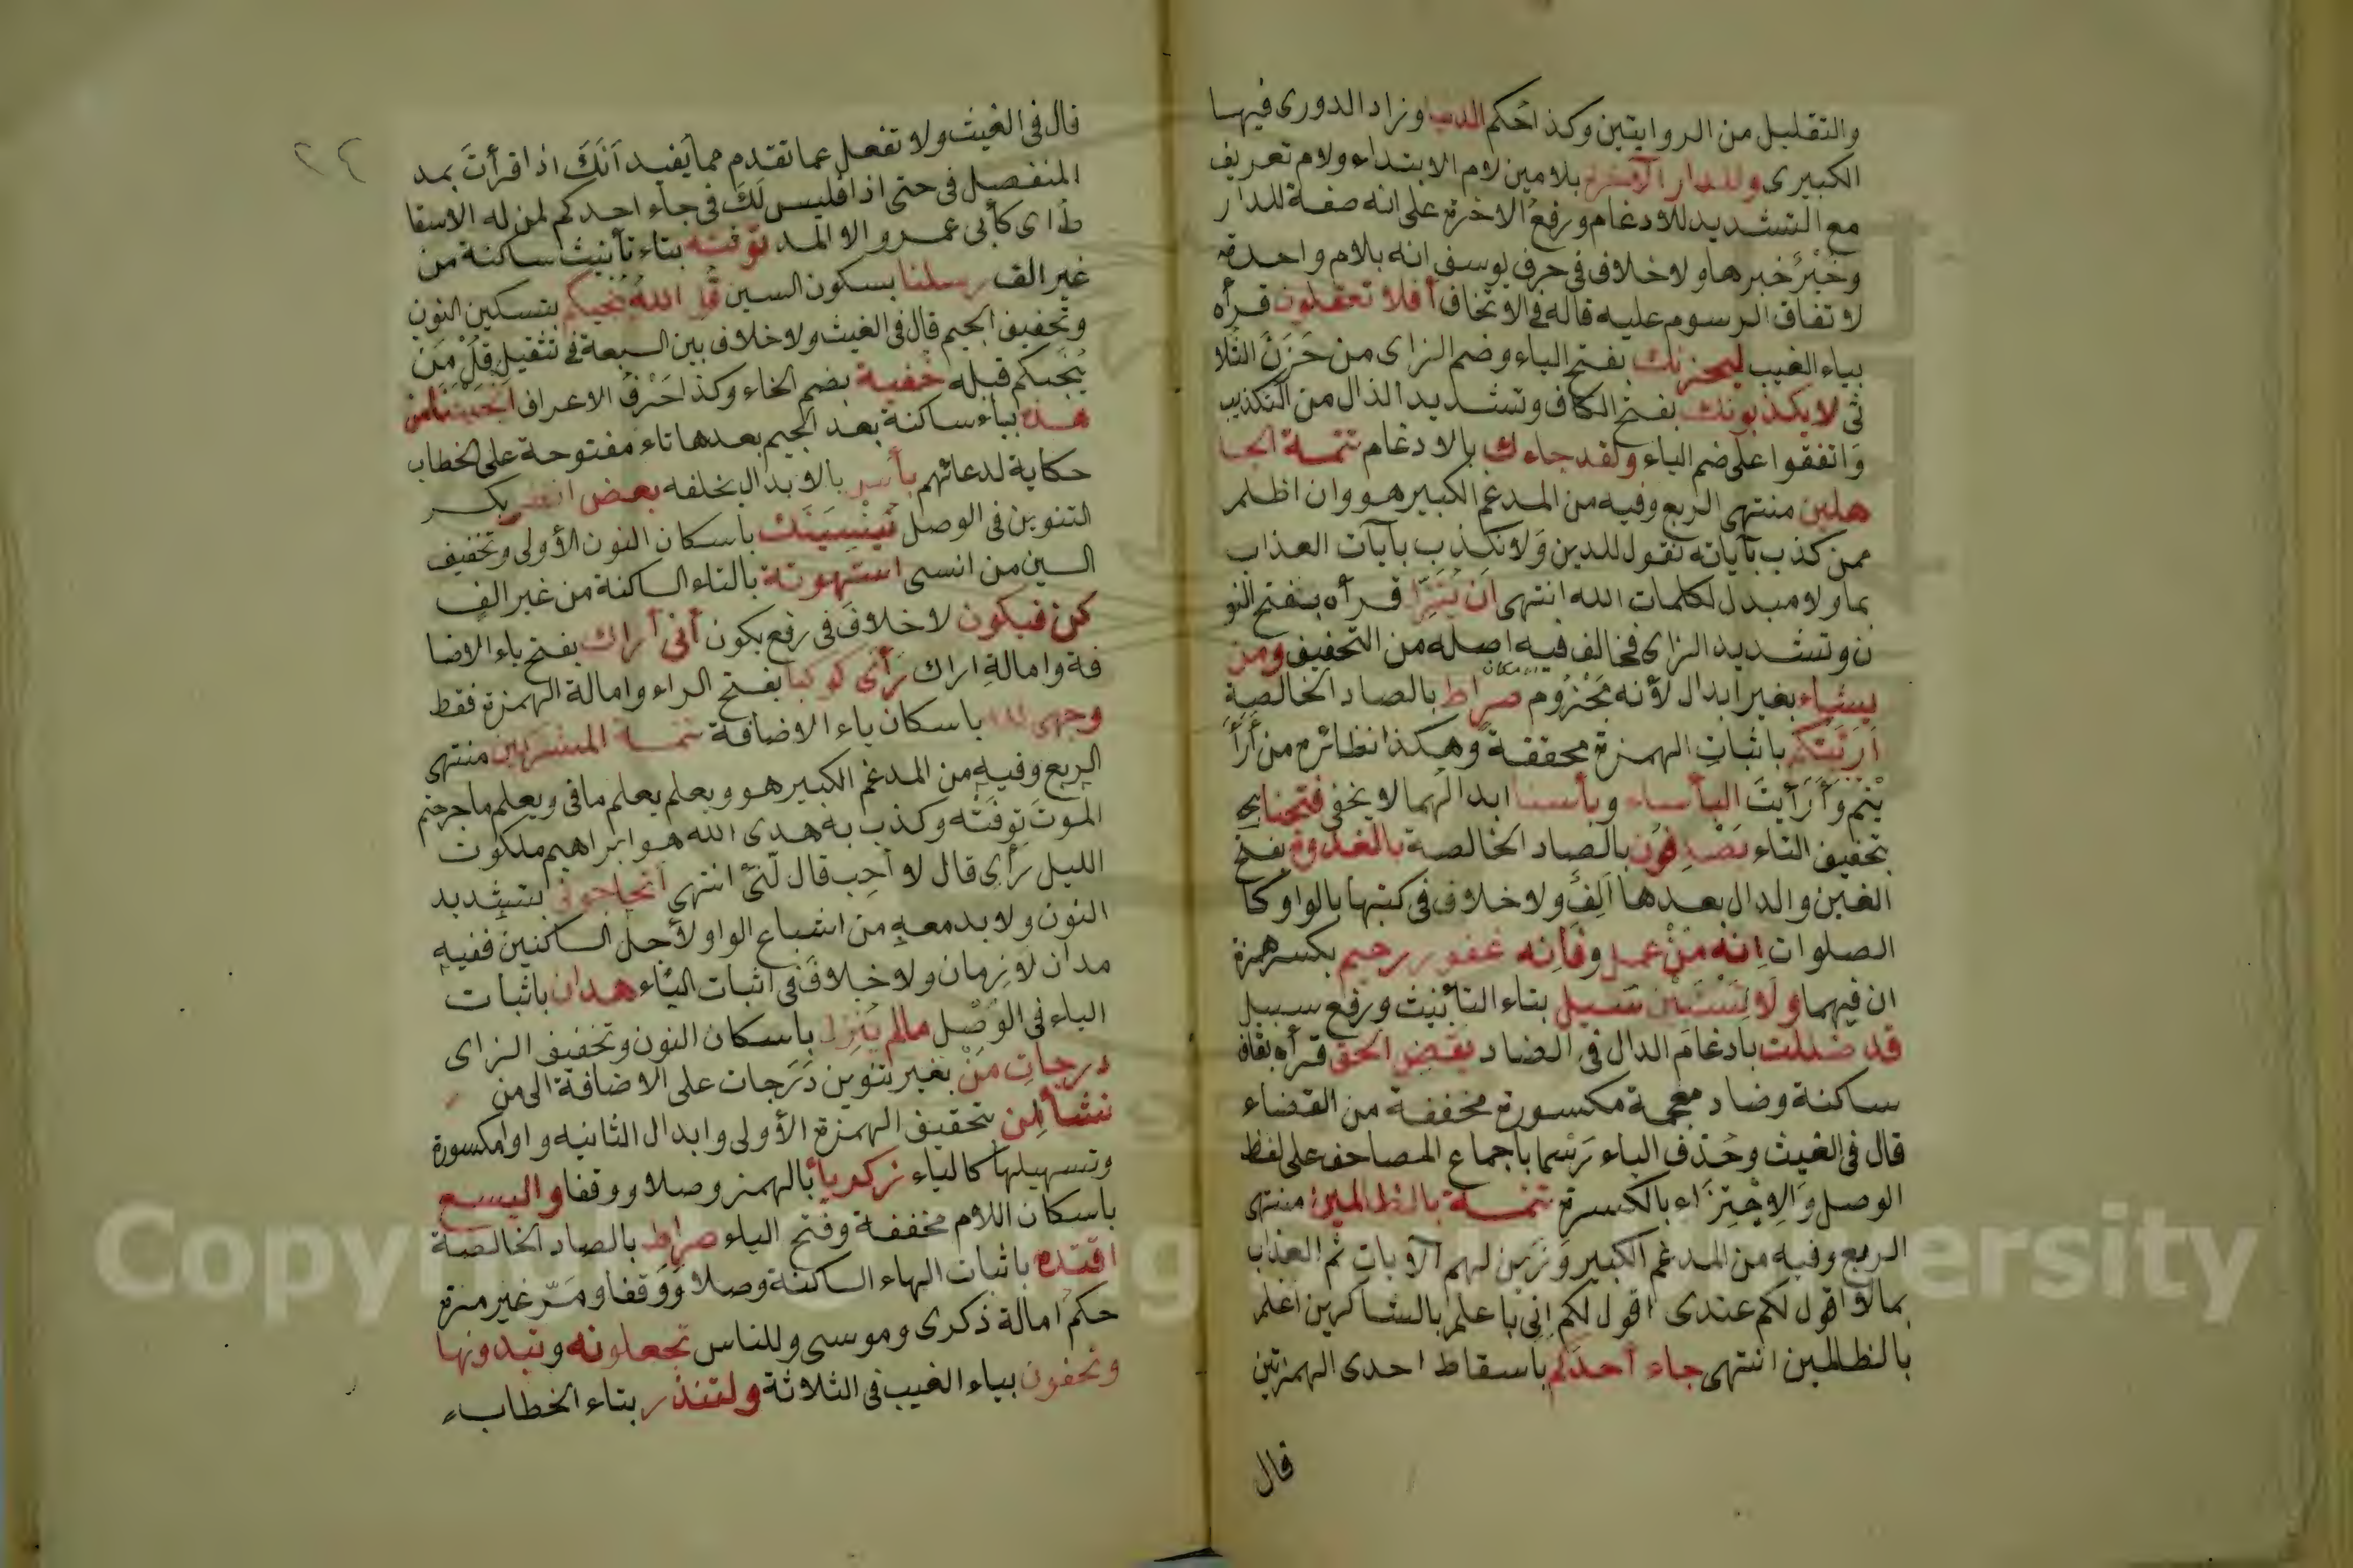 والتقليل من الروايتين وكذا حكم الدنيا وزاد الدورى فيها
الكبيرى وللدار الآخرة بلامين لام الابتداء ولام تعريف
مع التشديد للادغام ورفعُ الاخرة على انه صفة للدار
وخَيْرٌ خبرها ولا خلاف فى حرف يوسف انه بلام واحدة
لاتفاق الرسوم عليه قاله فى الاتحاف أفلا تعقلون قرأه
بياء الغيب ليحزنك بفتح الياء وضم الزاى من حَزَنَ الثلا
ثى لا يكذبونك بفتح الكاف وتشديد الذال من التكذيب
وَاتفقوا على ضم الياء ولقد جاءك بالادغام تتمة الجا
هلين منتهى الربع وفيه من المدغم الكبير هو وان اظلم
ممن كذب بآياته نقول للذين وَلا نكذب بآيات العذاب
بما ولا مبدل لكلمات الله انتهى ان يُنَزِّل قرأه بفتح النو
ن وتشديد الزاى فخالف فيه اصله من التخفيف ومن
يشاء بغير ابدال لأنه مَجْزُوم صراط بالصاد الخالصة
أرئتكم باثبات الهمزة محققة وهكذا نظائره من أَرَأَ
يْتم وَأَرَأيتَ البأساء وبأسنا ابدالهما لا يخفى فتحنا
بتخفيف التاء يَصْدِفون بالصاد الخالصة بالغدوة بفتح
الغين والدال بعدها الف ولا خلاف فى كتبها بالواو كا
الصلوات انه مَنْ عمل وفانه غفور رحيم بكسر همزة
ان فيهما ولتَسْتَبين سبيل بتاء التأنيث ورفع سبيل
قد ضللت بادغام الدال فى الضاد يقض الحق قرأه بقاف
ساكنة وضاد معجمة مكسورة مخففة من القضاء
قال فى الغيث وحُذف الياء رَسْما باجماع المصاحف على لفظ
الوصل وَالاجْتِزَاء بالكسرة تتمة بالظالمين منتهى
الربع وفيه من المدغم الكبير وَزَين لهم الآيات ثم العذاب
بما لا اقول لكم عندى اقول لكم إنى باعلم بالشاكرين أعلم
بالظالمين انتهى جاء أحدَكم باسقاط احدى الهمزتين
قال
٢٤
قال فى الغيث ولا تغفل عما تقدم مما يفيد اَنَّكَ اذا قرأتَ بمد
المنفصل فى حتى اذا فليس لَكَ فى جاء احدكم لمن له الاسقا
ط اى كأبى عمرو الا المد توفته بتاء تأنيث ساكنة من
غير الف رسلنا بسكون السين قُل الله يُنجيكم بتسكين النون
وتخفيف الجيم قال فى الغيث ولا خلاف بين السبعة فى تثقيل قل مَن
يُنَجيكم قبله خفية بضم الخاء وكذا حَرْفُ الاعراف انجيتنا من
هذه بياء ساكنة بعد الجيم بعدها تاء مفتوحة على الخطاب
حكاية لدعائهم بأس بالابدال بخلفه بعض انظر بكسر
التنوين فى الوصل يُنْسِيَنَّك باسكان النون الأولى وتخفيف
السين من انسى استهوته بالتاء الساكنة من غير الف
كن فيكون لا خلافَ فى رفع يكون أنى أراك بفتح ياء الاضا
فة وامالةِ اراك رأى كوكبا بفتح الراء وامالة الهمزة فقط
وجهى لله باسكان ياء الاضافة تتمة المشركين منتهى
الربع وفيه من المدغم الكبير هو ويعلم يعلم ما فى ويعلم ما جرحتم
الموتَ توفَتْه وكذب به هدى الله هو ابراهيم ملكوت
الليل رأى قال لا أحب قال لَئِنْ انتهى أتحاجونى بتشديد
النون ولا بد معه من اشباع الواو لأجل الساكنين ففيه
مدان لازمان ولا خلافَ فى اثبات اليَاء هدان باثبات
الياء فى الوَصْل مالم يُنزل باسكان النون وتخفيف الزاى
درجاتِ مَنْ بغير تنوين دَرَجات على الاضافة الى من
نشأ ان بتحقيق الهمزة الأولى وابدال الثانيه واوا مكسورة
وتسهيلها كالياء زكرياءَ بالهمز وصلا ووقفا واليسع
باسكان اللام مخففة وفتح الياء صراط بالصاد الخالصة
اقتده باثبات الهاء الساكنة وصلا وَوَقفا ومَرّ غير مرة
حكمُ امالة ذكرى وموسى وللناس تجعلونه وتبدونها
وتخفون بياء الغيب فى الثلاثة ولتنذر بتاء الخطاب